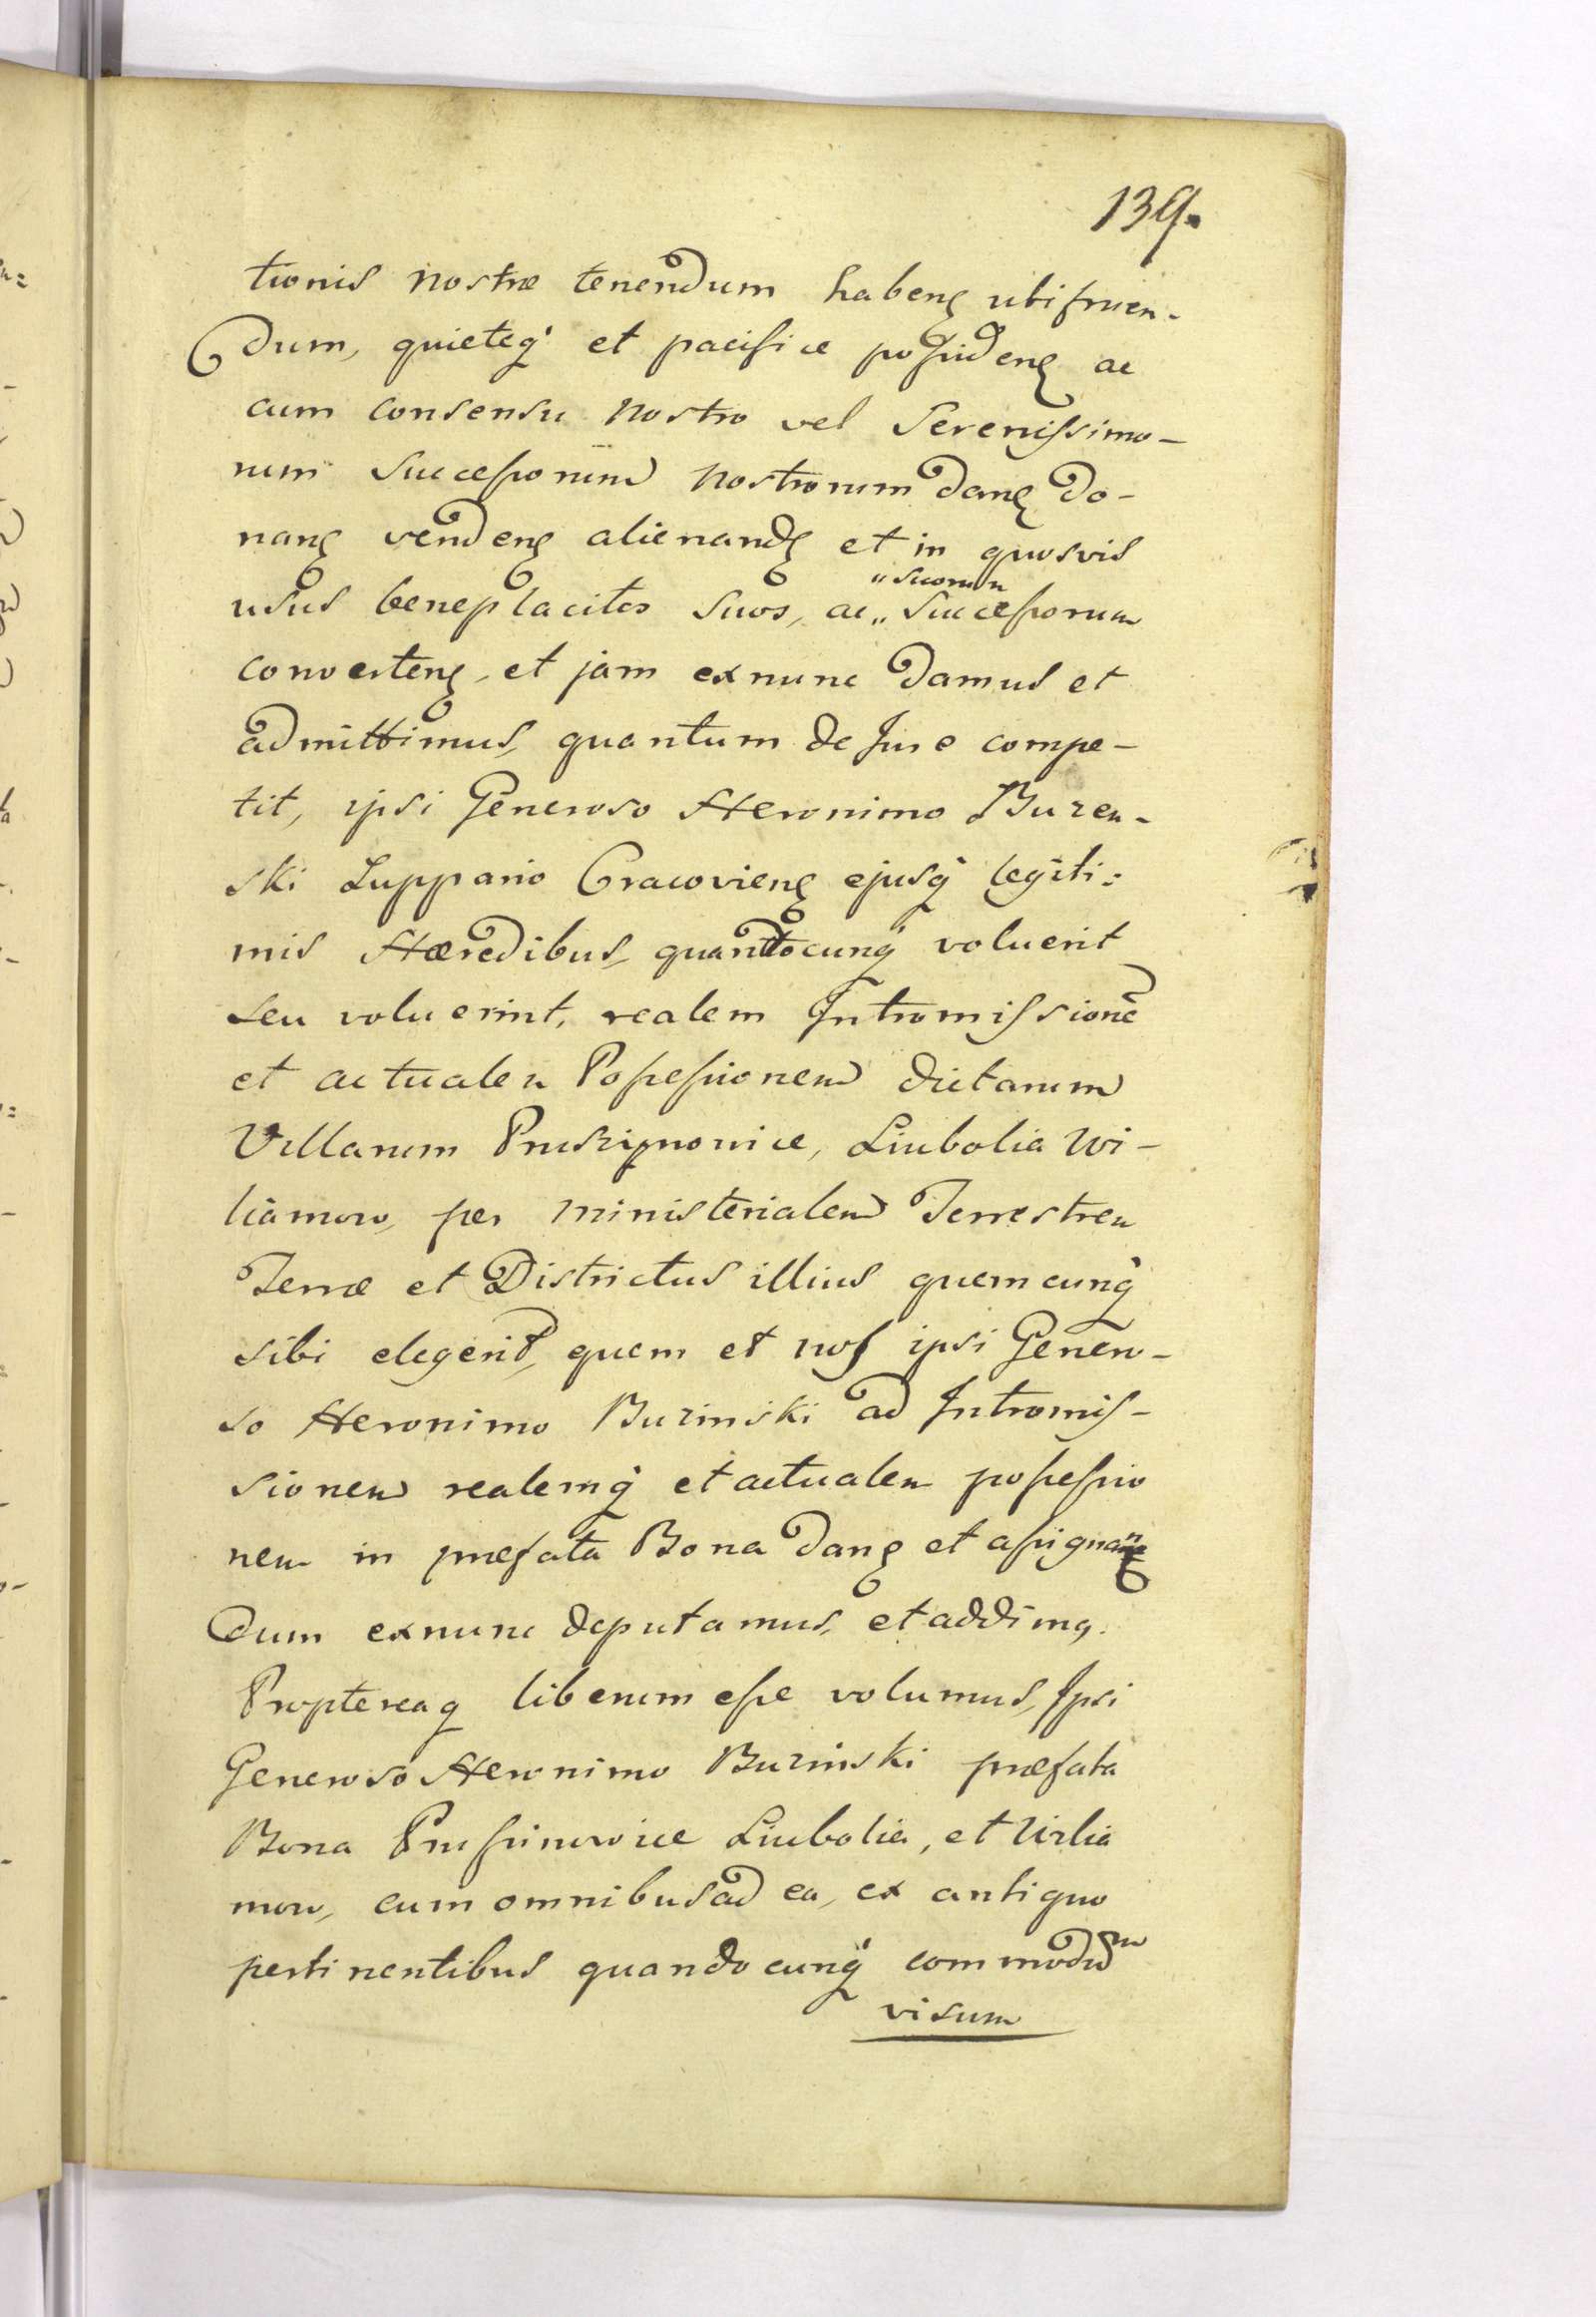 139.
tionis nostræ tenendum habenꝫ utifruen-
dum, quieteq́ et pacifice poſsidenꝫ ac
cum consensu nostro vel Sereniſsimo-
rum Succeſsorum nostrorum danꝫ do-
nanꝫ vendenꝫ alienandꝫ et in quosvis
"suorum
usus beneplacitos suos, ac „ Succeſsorum
convertenꝫ, et jam exnunc damus et
admittimus, quantum de Jure compe-
tit, ipsi Generoso Heronimo Buzen-
ski Zuppario Cracovienꝫ ejusq́ legiti:
mis Hæredibus, quandocunq́ voluerit
seu voluerint, realem Intromiſsionē
et actualem Poſseſsionem dictarum
Villarum Pruszignowice, Liubolia Wi-
liamow, per ministerialem Terrestrem
Terræ et Districtus illius quemcunq́
sibi elegerit, quem et nos ipsi Genero-
so Heronimo Buzinski ad Intromiſ-
sionem realemq́ et actualem poſseſsio
nem in præfata Bona danꝫ et aſsignanꝫ
dum exnunc deputamus, et addimꝯ.
Proptereaq liberum eſse volumus, Ipsi
Generoso Heronimo Buzinski præfata
Bona Pruſsinowice Liubolia, et Wilia
mow, cum omnibus ad ea, ex antiquo
pertinentibus quandocunq́ commodum
visum